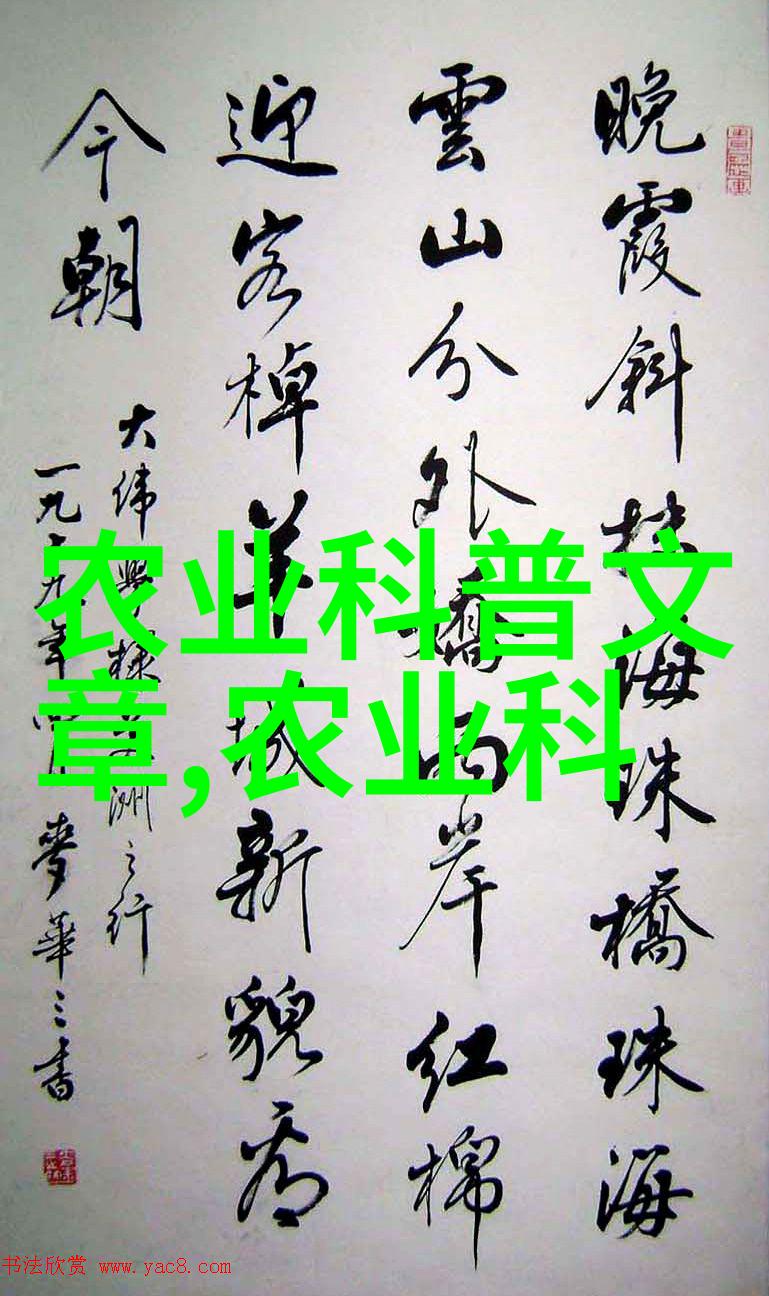 晚霞斜扶海珠橋珠海
雲山分外嬌两岸红棉
迎客棹羊城新貌看
今朝
大伟與棣之行
一九年麥華三书
农业科普文
章,农业科
书法欣赏 www.yac8.com